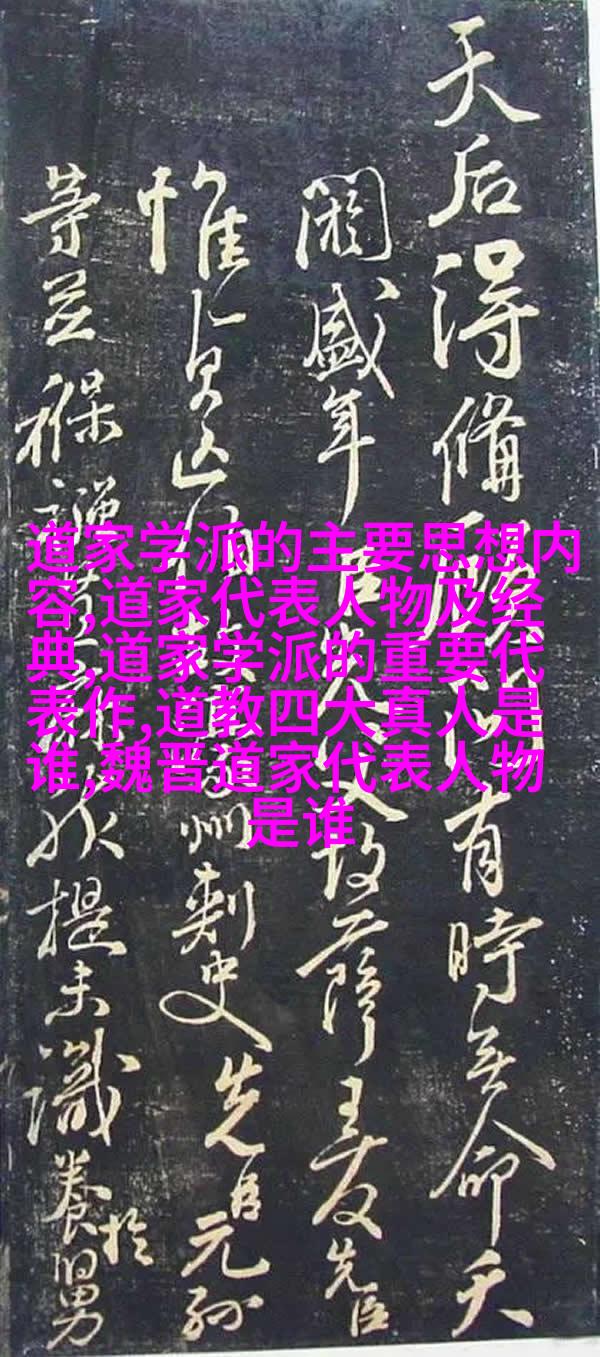 道家学派的主要思想内
容,道家代表人物及经
典,道家学派的重要代
表作,道教四大真人是
谁,魏晋道家代表人物
是谁
天后得備有時無命天
闕盛年故薩王友先臣
惟貞亡州刺史先臣元孫
等並褓提未識養於舅